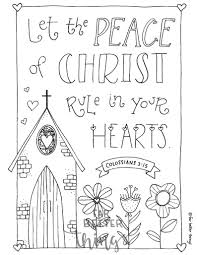 Let the PEACE
of CHRIST
RULE in YOUR
HEARTS.
COLOSSIANS 3:15
things